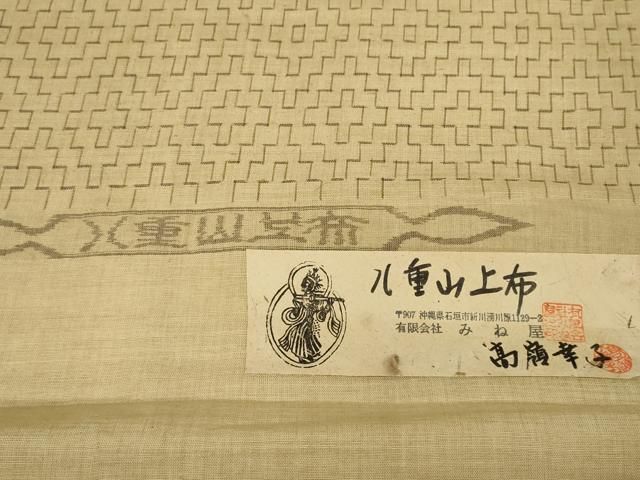 八重山上布
八重山上布
〒907 沖縄県石垣市新川湧川原1129-2
有限会社 みね屋
高嶺幸子